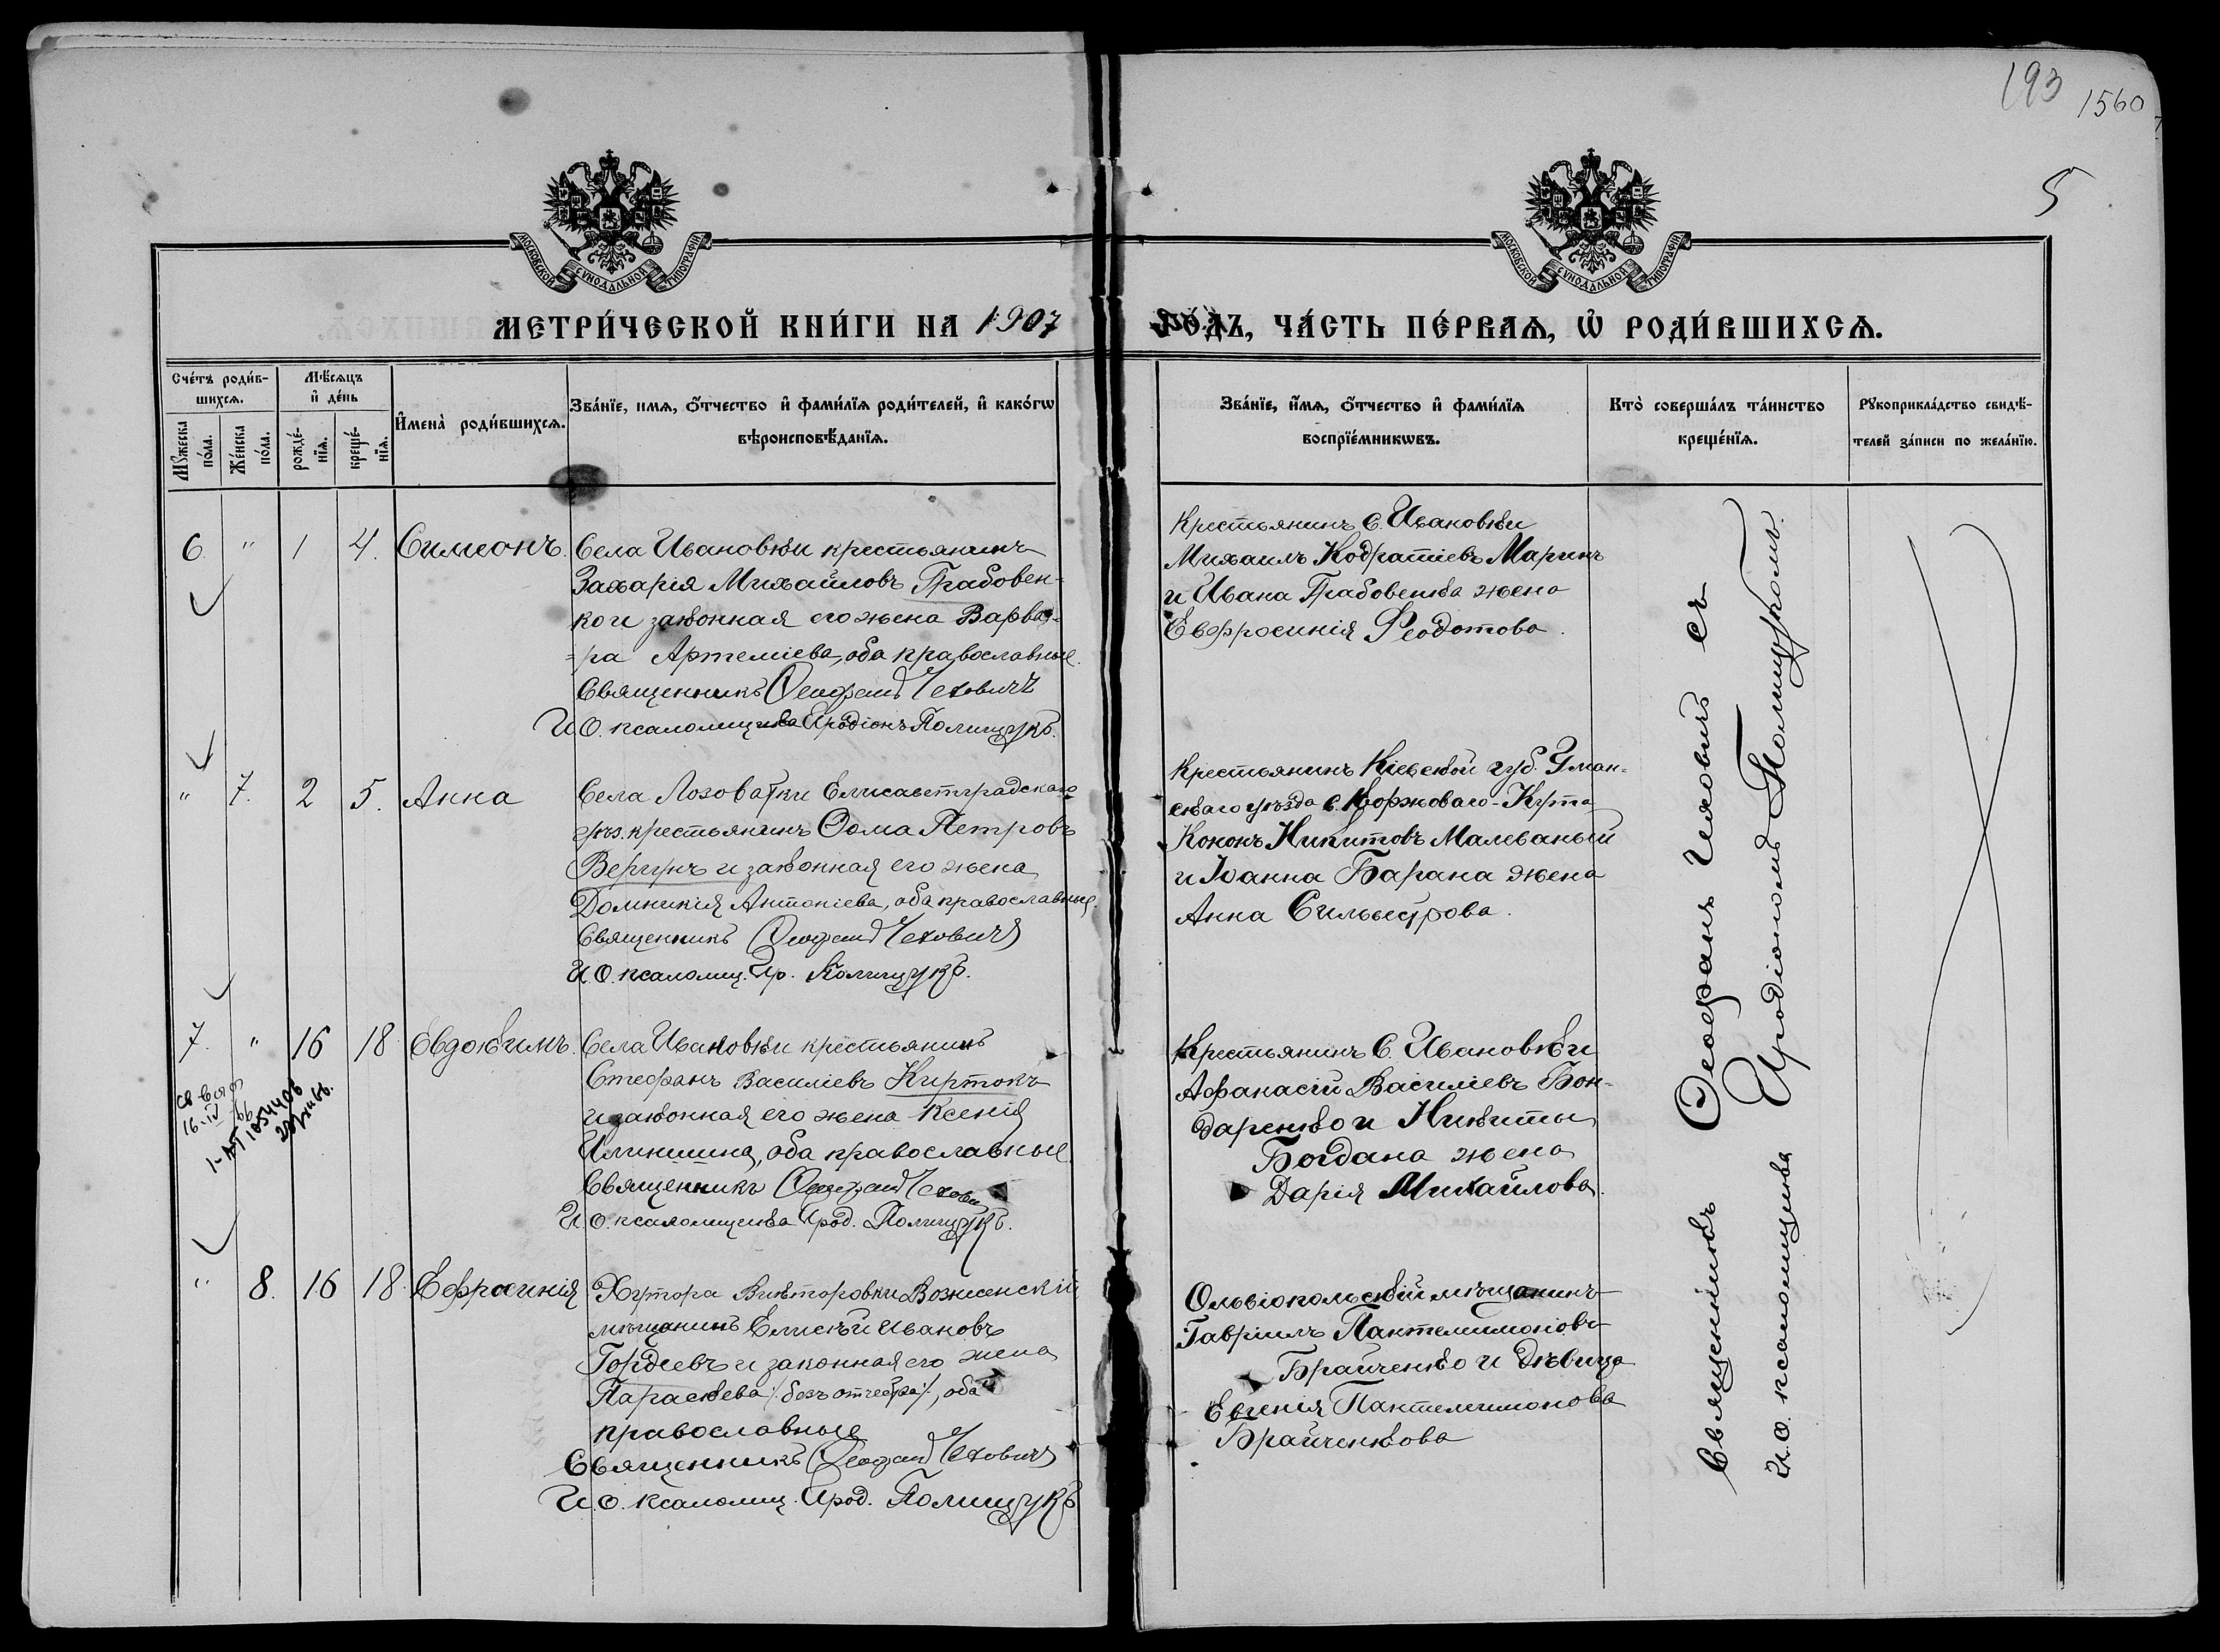 193
1560
5
МОСКОВСКОЙ СѴНОДАЛЬНОЙ ТИПОГРАФІИ
МОСКОВСКОЙ СѴНОДАЛЬНОЙ ТИПОГРАФІИ
МЕТРИ́ЧЕСКОЙ КНИ́ГИ НА 1907
ГО́ДЪ, ЧА́СТЬ ПЕ́РВАѦ, Ѡ҆ РОДИ́ВШИХСѦ.
Сче́тъ роди́в-
шихсѧ.
Мѣ́сѧцъ
и҆ де́нь
Мꙋ́жеска
по́ла.
Же́нска
по́ла.
рожде́-
нїѧ.
креще́-
нїѧ.
И҆мена̀ роди́вшихсѧ.
Зва́нїе, имѧ, ѻ҆́тчество и҆ фами́лїѧ роди́телей, и҆ како́гѡ
вѣроисповѣ́данїѧ.
Зва́нїе, и҆́мѧ, ѻ҆́тчество и҆ фами́лїѧ
воспрїе́мникѡвъ.
Кто̀ соверша́лъ та́инство
креще́нїѧ.
Рꙋкоприкла́дство свидѣ́-
телей за́писи по жела́нїю.
6. " 1 4. Симеонъ.
Села Ивановки крестьянинъ
Захарія Михайловъ Грабовен-
ко и законная его жена Варва-
=ра Артеміева, оба православные.
Священникъ Ѳеофанъ Чеховичъ
И.О. псаломщика Иродіонъ Полищукъ.
Крестьянинъ с. Ивановки
Михаилъ Кодратіевъ Маринъ
и Ивана Грабовенка жена
Евфросинія Феодотова.
" 7. 2 5. Анна
Села Лозоватки Елисаветградскаго
уѣз. крестьянинъ Ѳома Петровъ
Вергунъ и законная его жена
Домникія Антоніева, оба православные.
Священникъ Ѳеофанъ Чеховичъ
И.О. псаломщ. Ир. Полищукъ.
Крестьянинъ Кіевской губ. Уман-
скаго уѣзда с. Коржоваго-Кута
Кононъ Никитовъ Малеваный
и Іоанна Барана жена
Анна Сильвестрова.
7. " 16 18 Евдокимъ.
Села Ивановки крестьянинъ
Стефанъ Василіевъ Киртокъ
и законная его жена Ксенія
Илиишна, оба православные.
Священникъ Ѳеофанъ Чехович
И.О. псаломщика Ирод. Полищукъ.
16-IV 66
Крестьянинъ С. Ивановки
Афанасій Василіевъ Бон-
даренко и Никиты
Богдана жена
Дарія Михайлова.
" 8. 16 18. Ефросинія
Хутора Викторовки Вознесенскій
мѣщанинъ Елисѣй Ивановъ
Гордѣевъ и законная его жена
Параскева /:безъ отчества:/, оба
православные
Священникъ Ѳеофанъ Чеховичъ
И.О. псаломщ. Ирод. Полищукъ
Ольвіопольскій мѣщанинъ
Гавріилъ Пантелимоновъ
Брайченко и дѣвица
Евгенія Пантелеимонова
Брайченкова
Священникъ Ѳеофанъ Чеховичъ съ
И.О. псаломщика Иродіономъ Полищукомъ.